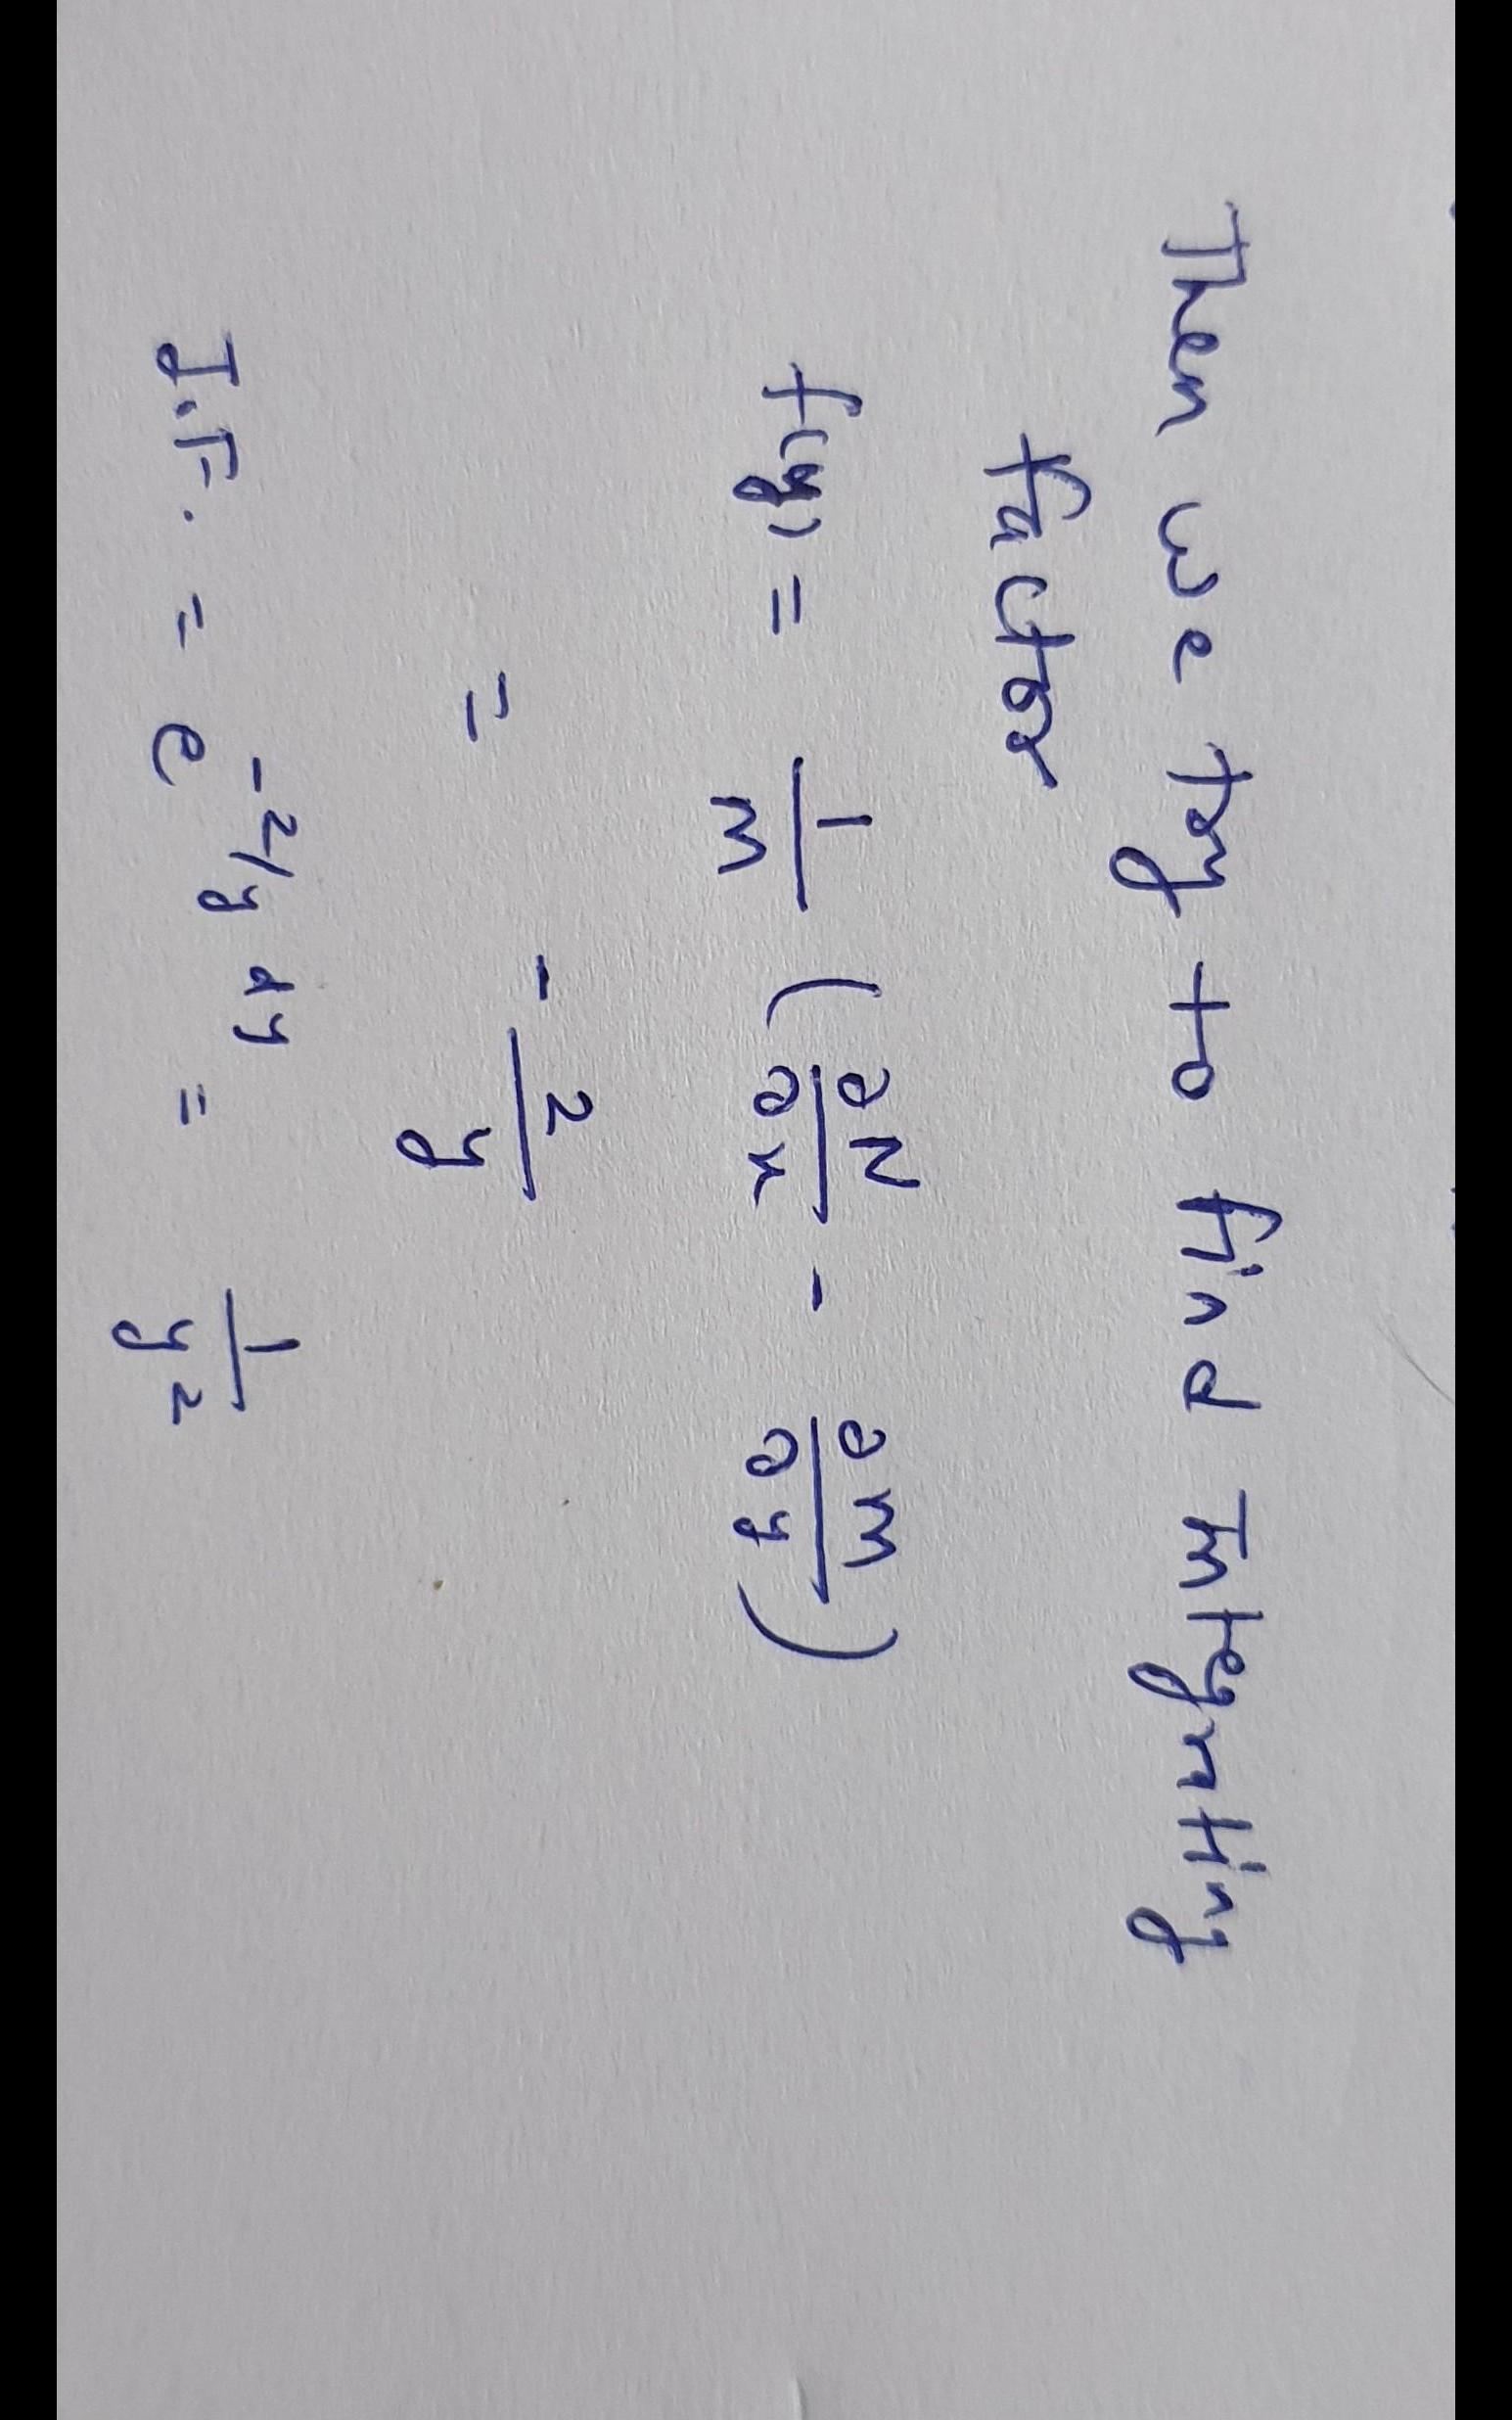 Then we try to find Integrating
factor
f(y) = 1/M (∂N/∂x - ∂M/∂y)
= - 2/y
I.F. = e^{-2/y dy} = 1/y²